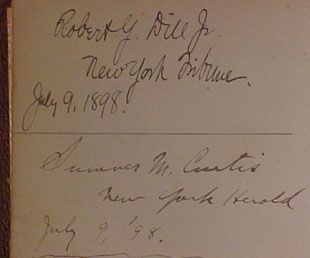 Robert G. Dill Jr.
New York Tribune.
July 9, 1898.
Sumner M. Curtis
New York Herald
July 9, '98.